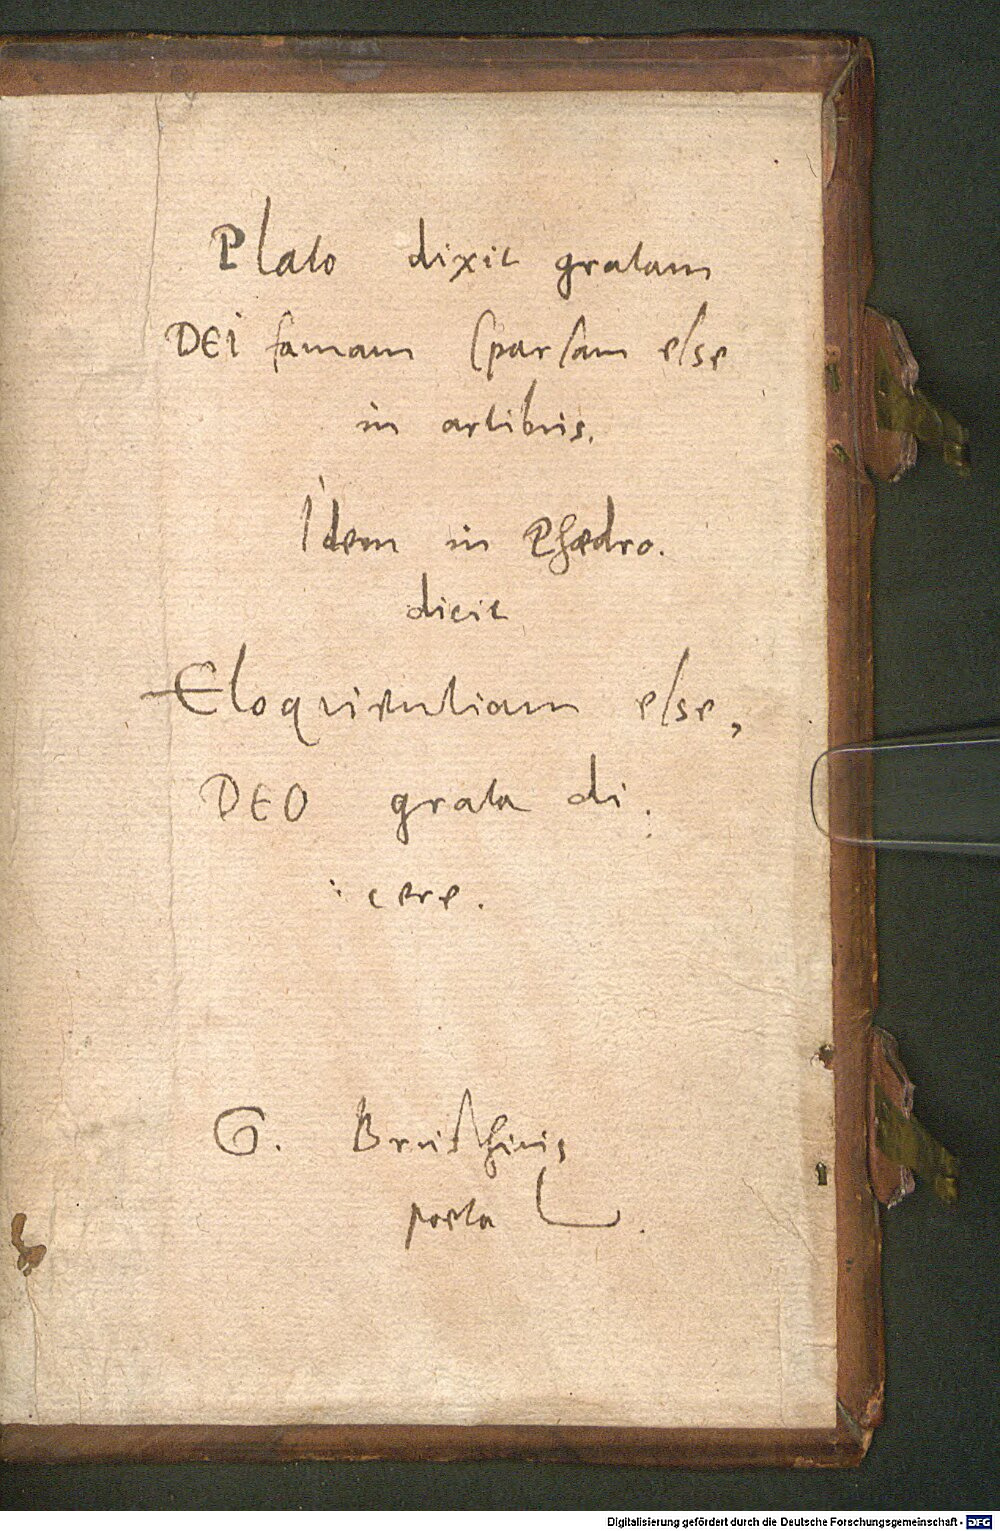 Plato dixit gratam
DEI famam sparsam esse
in artibus.
Idem in Phædro.
dicit
Eloquentiam esse,
DEO grata di:
:cere.
G. Bruschius
poeta L.
Digitalisierung gefördert durch die Deutsche Forschungsgemeinschaft - DFG